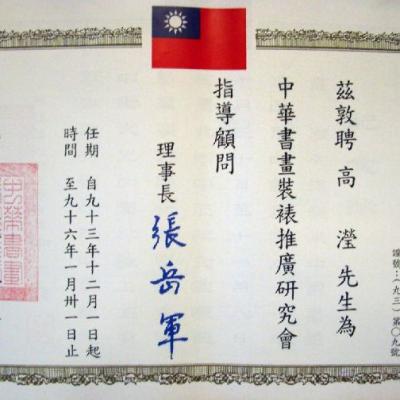 證號：(九三)第〇九號
茲敦聘 高 瀅 先生為
中華書畫裝裱推廣研究會
指導顧問
理事長 張岳軍
任期 自九十三年十二月一日起
時間 至九十六年一月卅一日止